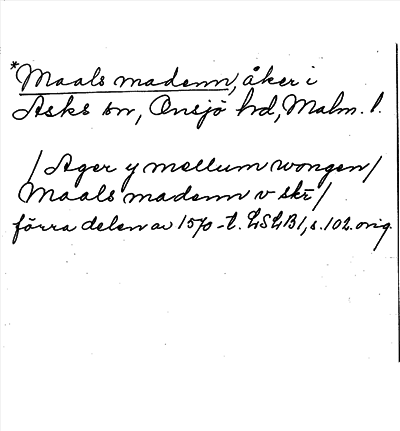 *Maals madenn, åker i
Asks sn, Onsjö hd, Malm. l.
/ Ager y mellum wongen /
Maals madenn v skr /
förra delen av 1570-t. LSLB1, s. 102. orig.